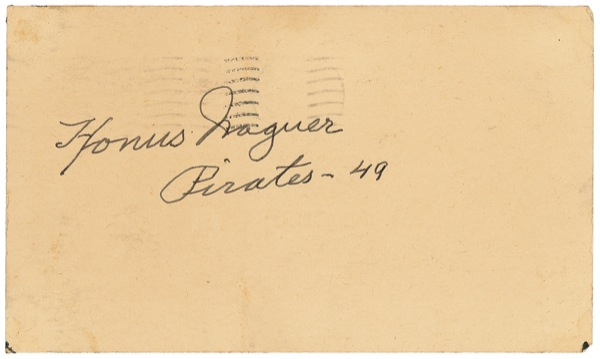 Honus Wagner
Pirates - 49